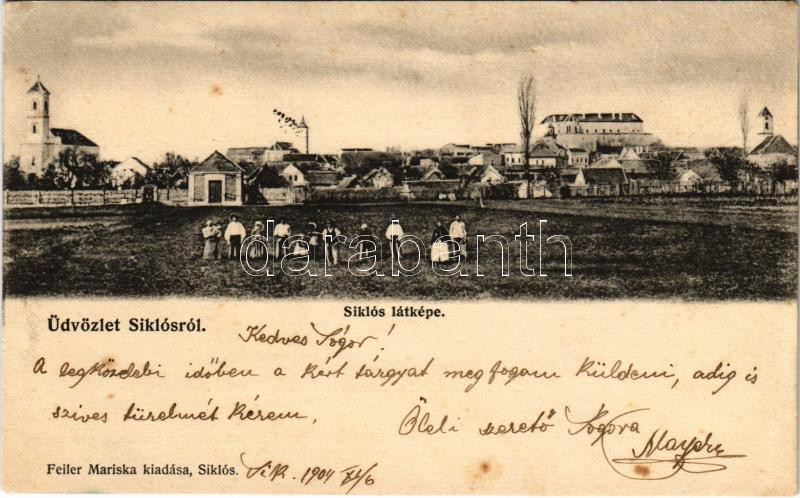 darabanth
Siklós látképe.
Üdvözlet Siklósról.
Kedves Sógor!
A legközelebi időben a kért tárgyat megfogam küldeni, adig is
szives türelmét kérem.
Öleli szerető Sógora
Feiler Mariska kiadása, Siklós.
Sik. 1904 XI/6